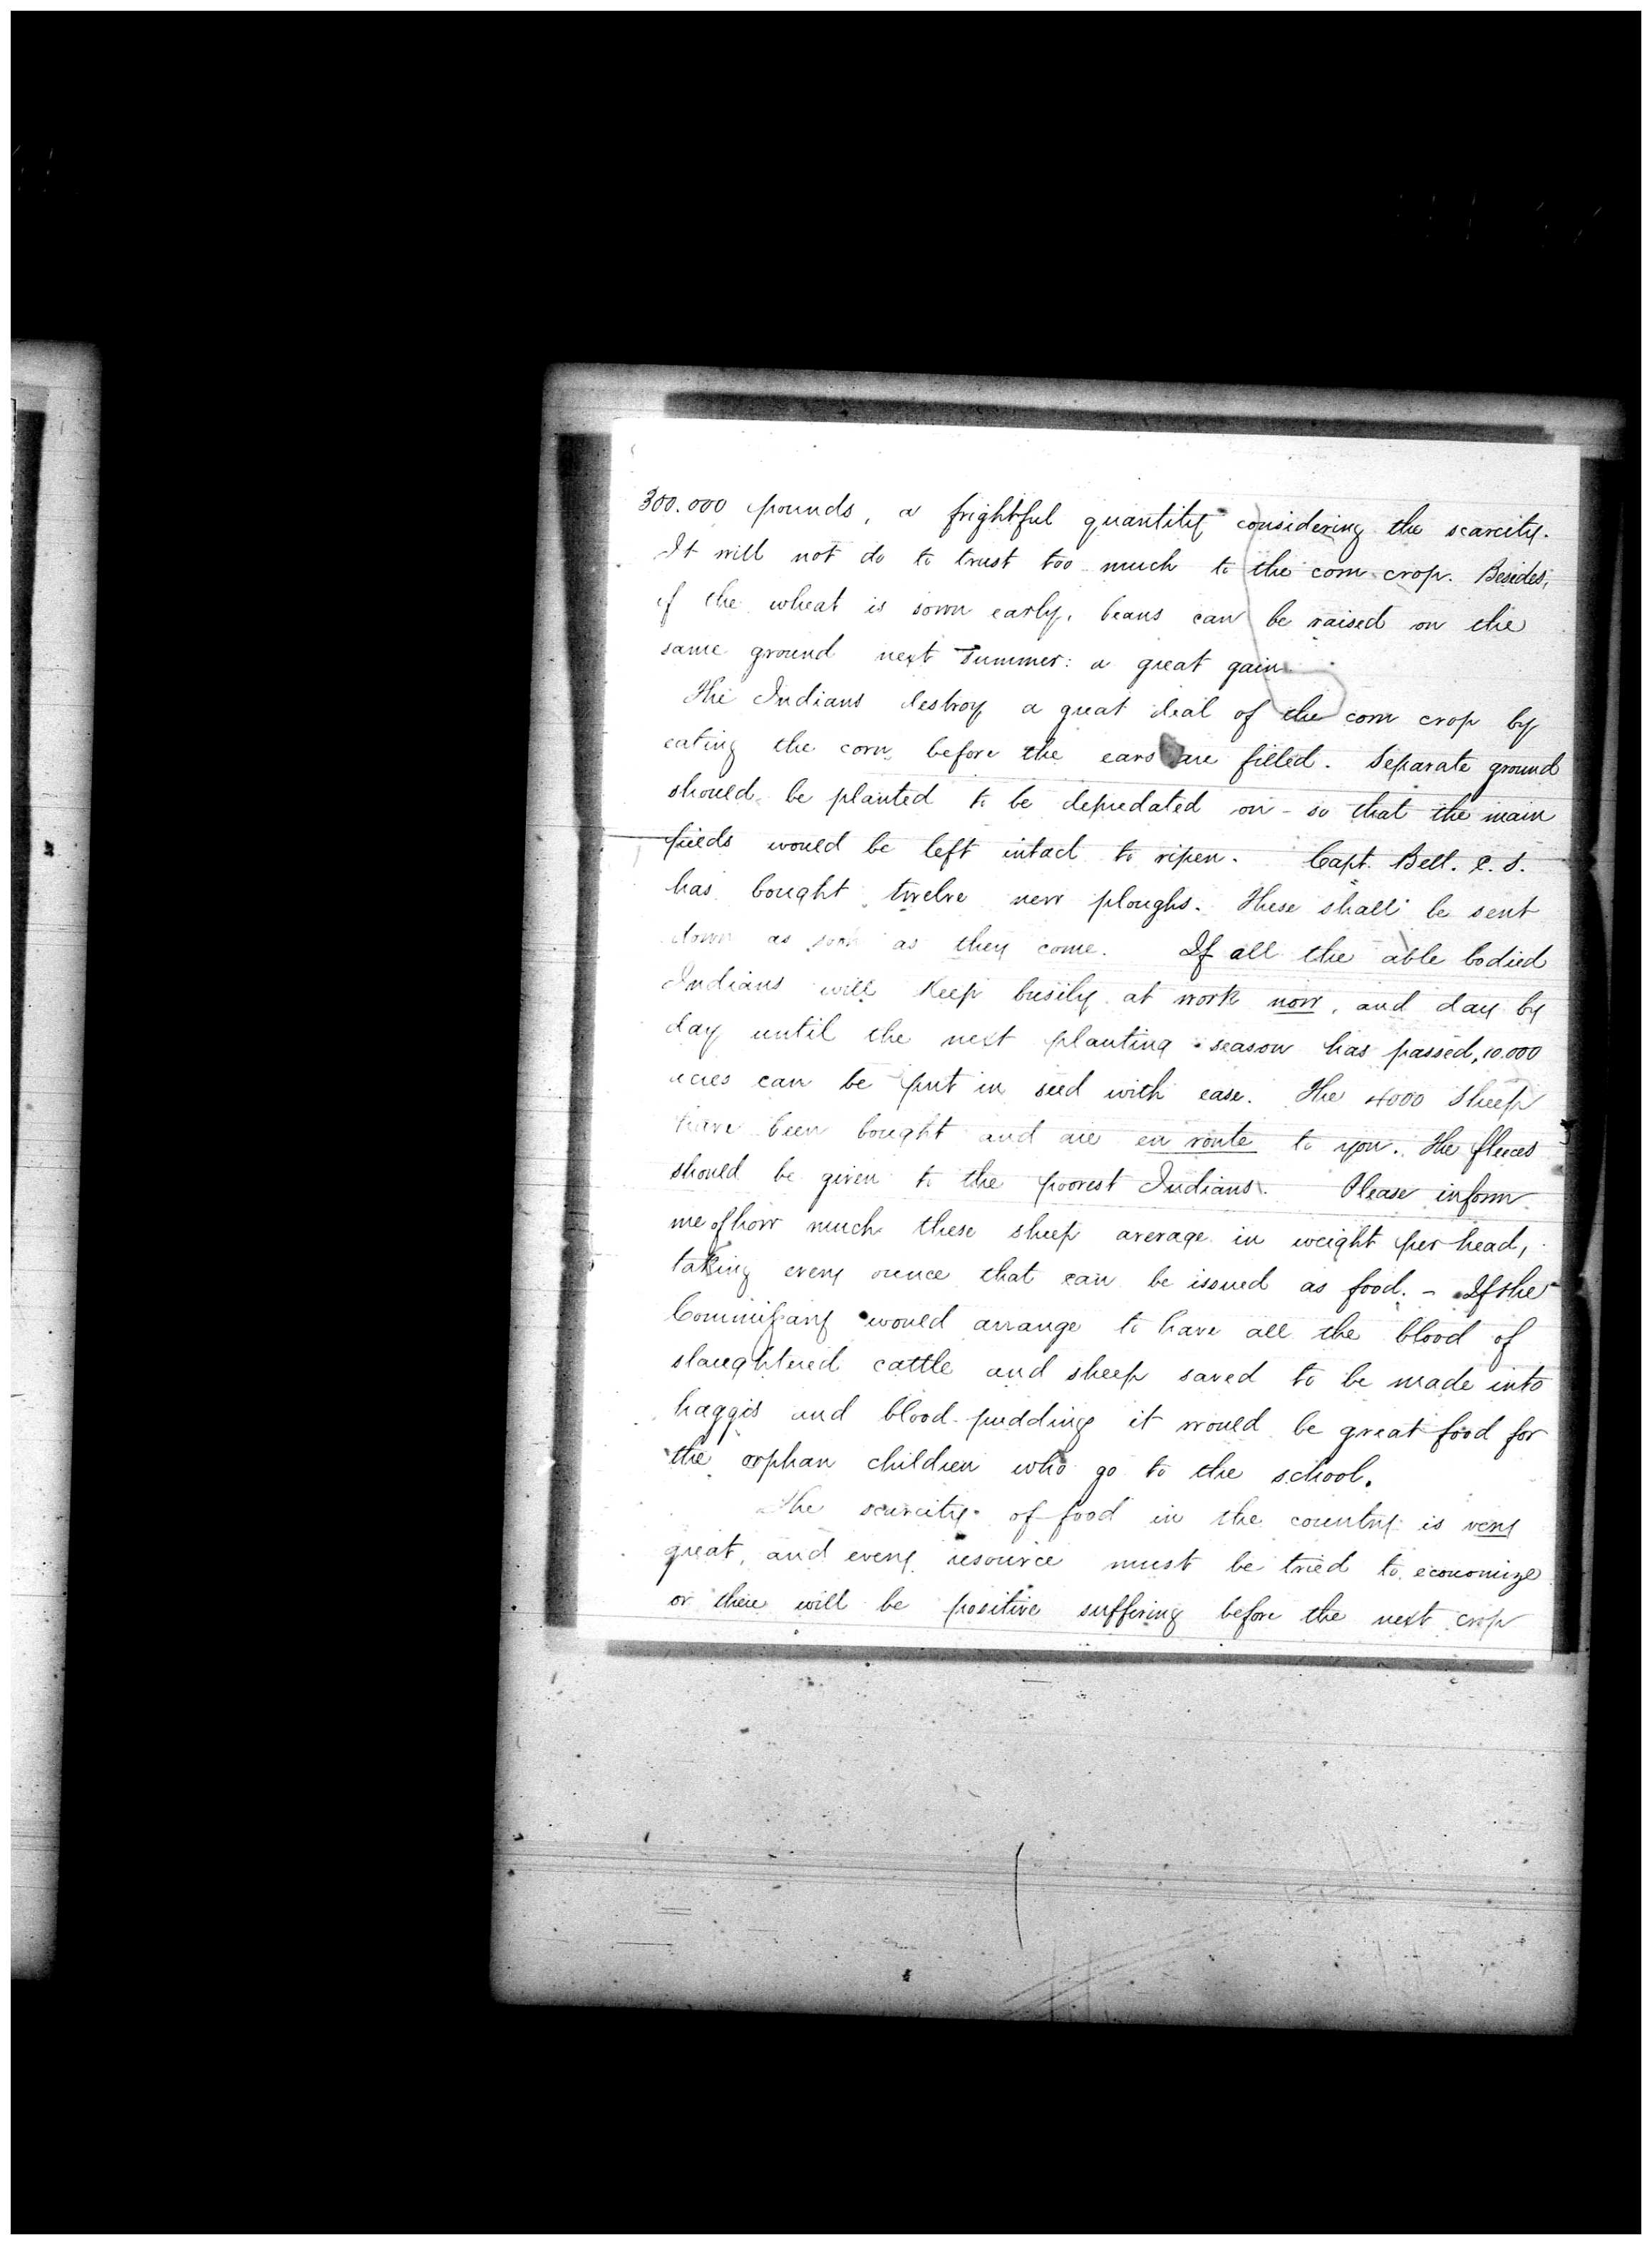 300.000 pounds, a frightful quantity considering the scarcity.
It will not do to trust too much to the corn crop. Besides,
if the wheat is sown early, beans can be raised on the
same ground next Summer: a great gain.
The Indians destroy a great deal of the corn crop by
eating the corn, before the ears are filled. Separate ground
should be planted to be depredated on - so that the main
fields would be left intact to ripen. Capt. Bell. C. S.
has bought twelve new ploughs. These shall be sent
down as soon as they come. If all the able bodied
Indians will Keep busily at work now, and day by
day until the next planting season has passed, 10.000
acres can be put in seed with ease. The 4000 Sheep
have been bought and are en route to you. The fleeces
should be given to the poorest Indians. Please inform
me of how much these sheep average in weight per head,
taking every ounce that can be issued as food. - If the
Commissary would arrange to have all the blood of
slaughtered cattle and sheep saved to be made into
haggis and blood-puddings it would be great food for
the orphan children who go to the school.
The scarcity of food in the country is very
great, and every resource must be tried to economize
or there will be positive suffering before the next crop